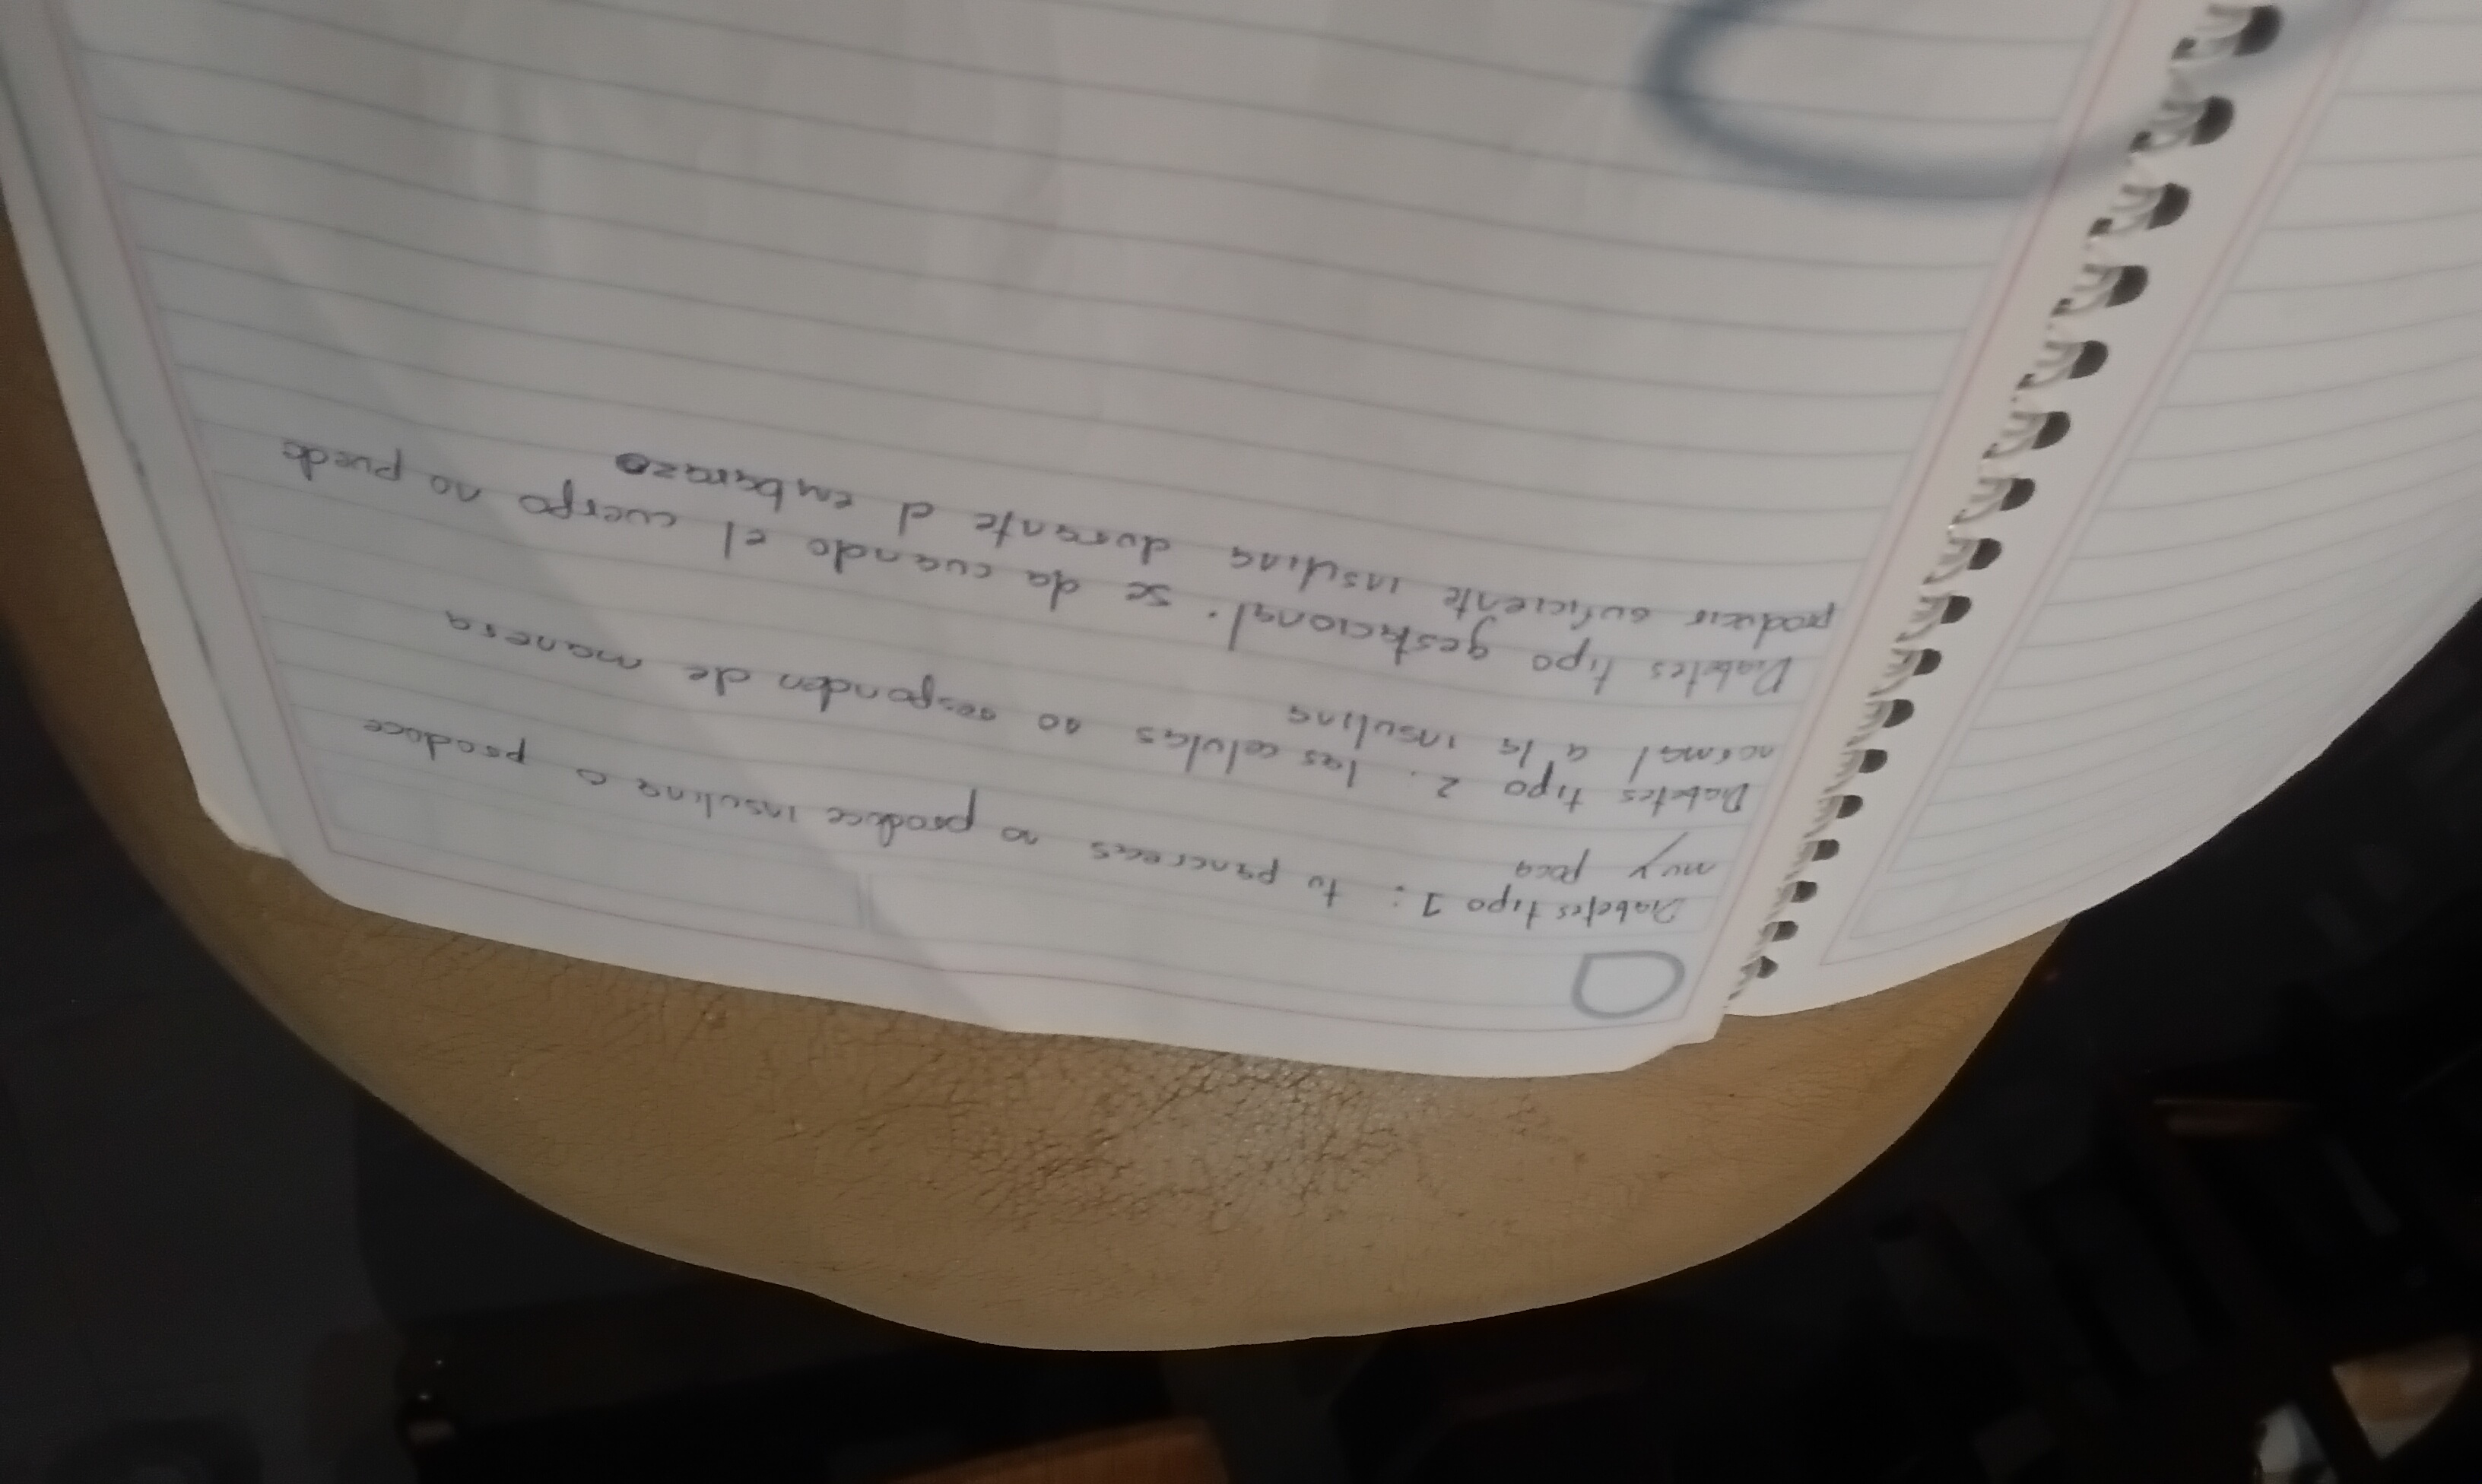 Diabetes tipo 1: tu pancreas no produce insulina o produce
muy poca
Diabetes tipo 2. las celulas no responden de manera
normal a la insulina
Diabetes tipo gestacional. se da cuando el cuerpo no puede
producir suficiente insulina durante el embarazo